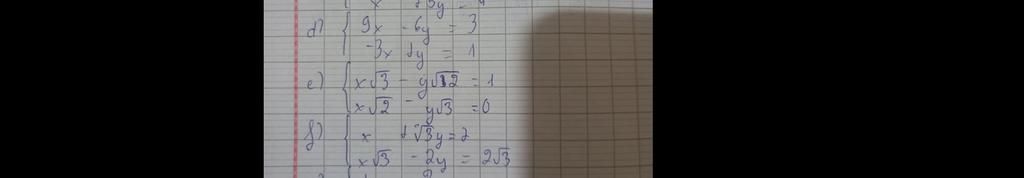 x +5y =
d) { 9x - 6y = 3
-3x +y = 1
e) { x√3 - y√12 = 1
x√2 - y√3 = 0
f) { x + √3y = 2
x√3 - 2y = 2√3